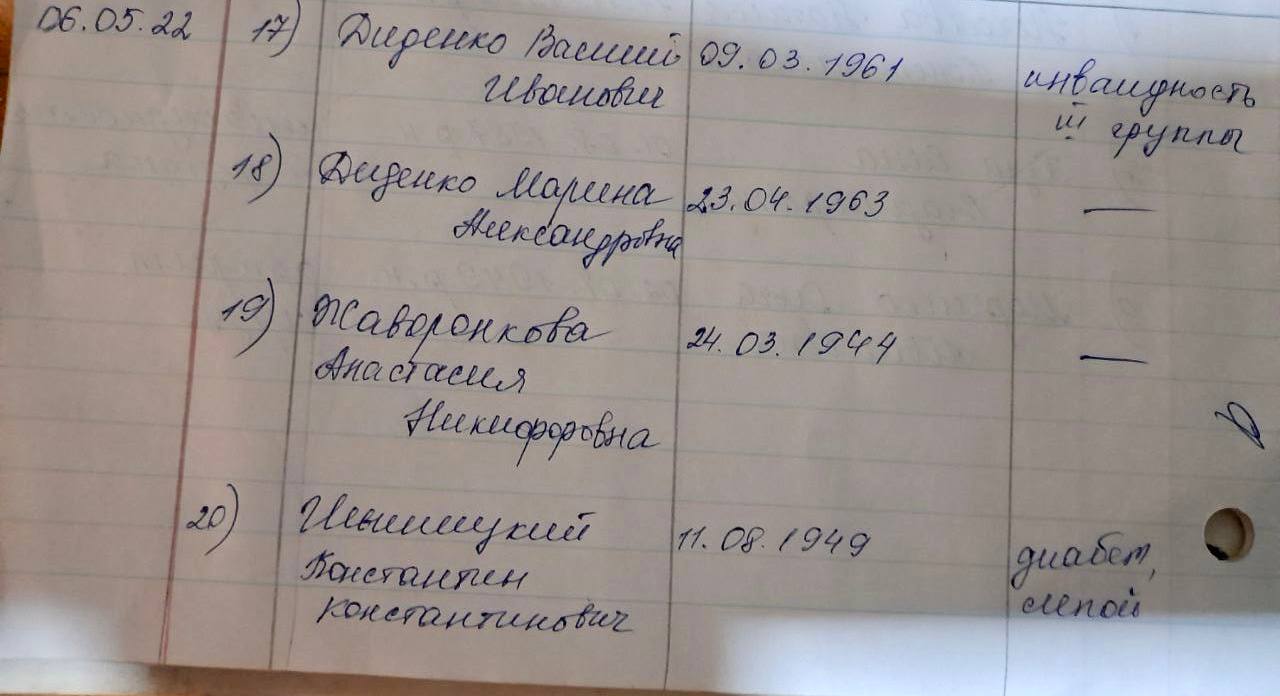 06.05.22 17) Диденко Василий 09.03.1961
Иванович инвалидность
III группы
18) Диденко Марина 23.04.1963 —
Александровна
19) Жаворонкова 24.03.1944 —
Анастасия
Никифоровна
20) 11.08.1949
Константин диабет,
константинович слепой